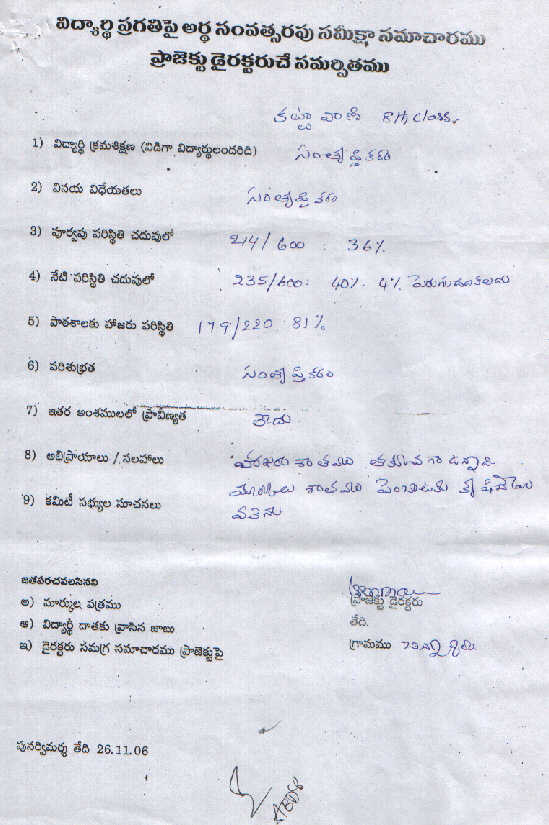 విద్యార్థి ప్రగతిపై అర్ధ సంవత్సరపు సమీక్షా సమాచారము
ప్రాజెక్టు డైరక్టరుచే సమర్పితము
వాణి 8th class.
1) విద్యార్థి క్రమశిక్షణ (విడిగా విద్యార్థులందరిది) సంతృప్తికరం
2) వినయ విధేయతలు సంతృప్తికరం
3) పూర్వపు పరిస్థితి చదువులో 214/600 : 36%
4) నేటి పరిస్థితి చదువులో 235/600: 40% 4% పెరుగుదల కలదు
5) పాఠశాలకు హాజరు పరిస్థితి 179/220 81%
6) పరిశుభ్రత సంతృప్తికరం
7) ఇతర అంశములలో ప్రావీణ్యత లేదు
8) అభిప్రాయాలు / సలహాలు హాజరు శాతము తక్కువగా ఉన్నది
మార్కులు శాతము పెంచుటకు కృషి
9) కమిటీ సభ్యుల సూచనలు
జతపరచవలసినవి
అ) మార్కుల పత్రము
ప్రాజెక్టు డైరక్టరు
ఆ) విద్యార్థి దాతకు వ్రాసిన జాబు
తేది.
ఇ) డైరక్టరు సమగ్ర సమాచారము ప్రాజెక్టుపై
గ్రామము
పునర్విమర్శ తేది 26.11.06